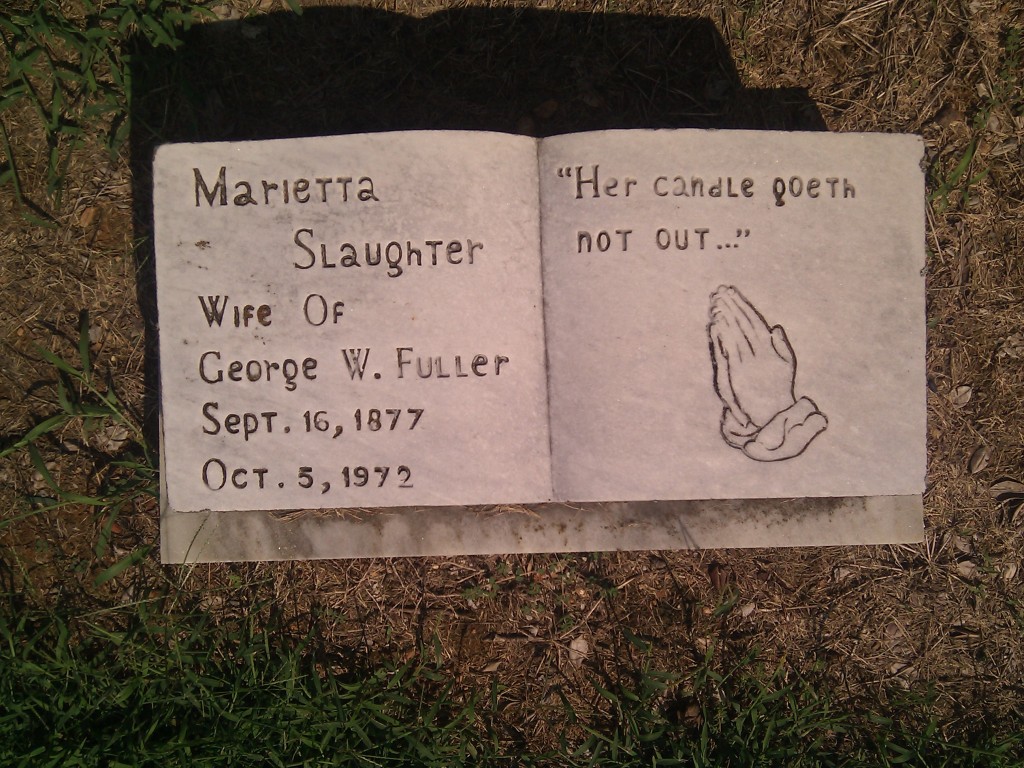 Marietta
Slaughter
Wife Of
George W. Fuller
Sept. 16, 1877
Oct. 5, 1972
"Her candle goeth
not out..."